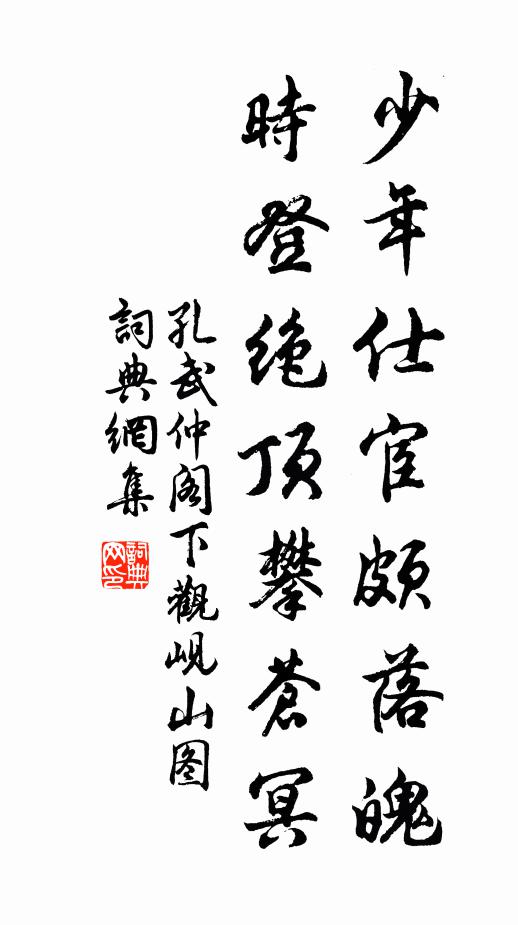 少年仕宦頗落魄
時登絶頂攀蒼冥
孔武仲阁下觀峴山图
詞典網集
詞典网印